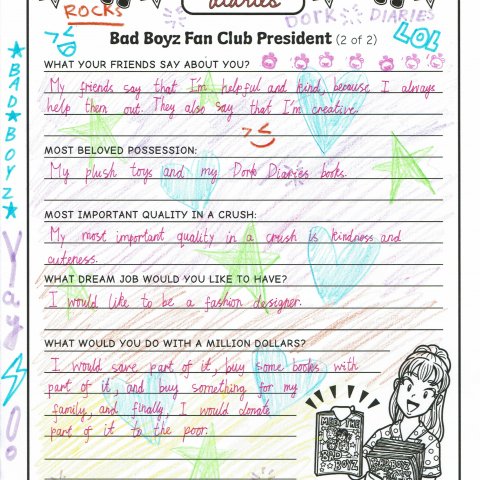 ROCKS
diaries
DORK DIARIES
LOL
Bad Boyz Fan Club President (2 of 2)
WHAT YOUR FRIENDS SAY ABOUT YOU?
My friends say that I'm helpful and kind, because I always
help them out. They also say that I'm creative.
MOST BELOVED POSSESSION:
My plush toys and my Dork Diaries books.
MOST IMPORTANT QUALITY IN A CRUSH:
My most important quality in a crush is kindness and
cuteness.
WHAT DREAM JOB WOULD YOU LIKE TO HAVE?
I would like to be a fashion designer.
WHAT WOULD YOU DO WITH A MILLION DOLLARS?
I would save part of it, buy some books with
part of it, and buy something for my
family, and finally, I would donate
part of it to the poor.
BAD BOYZ
Yay
MEET THE
BAD
BOYZ
BAD BOYZ